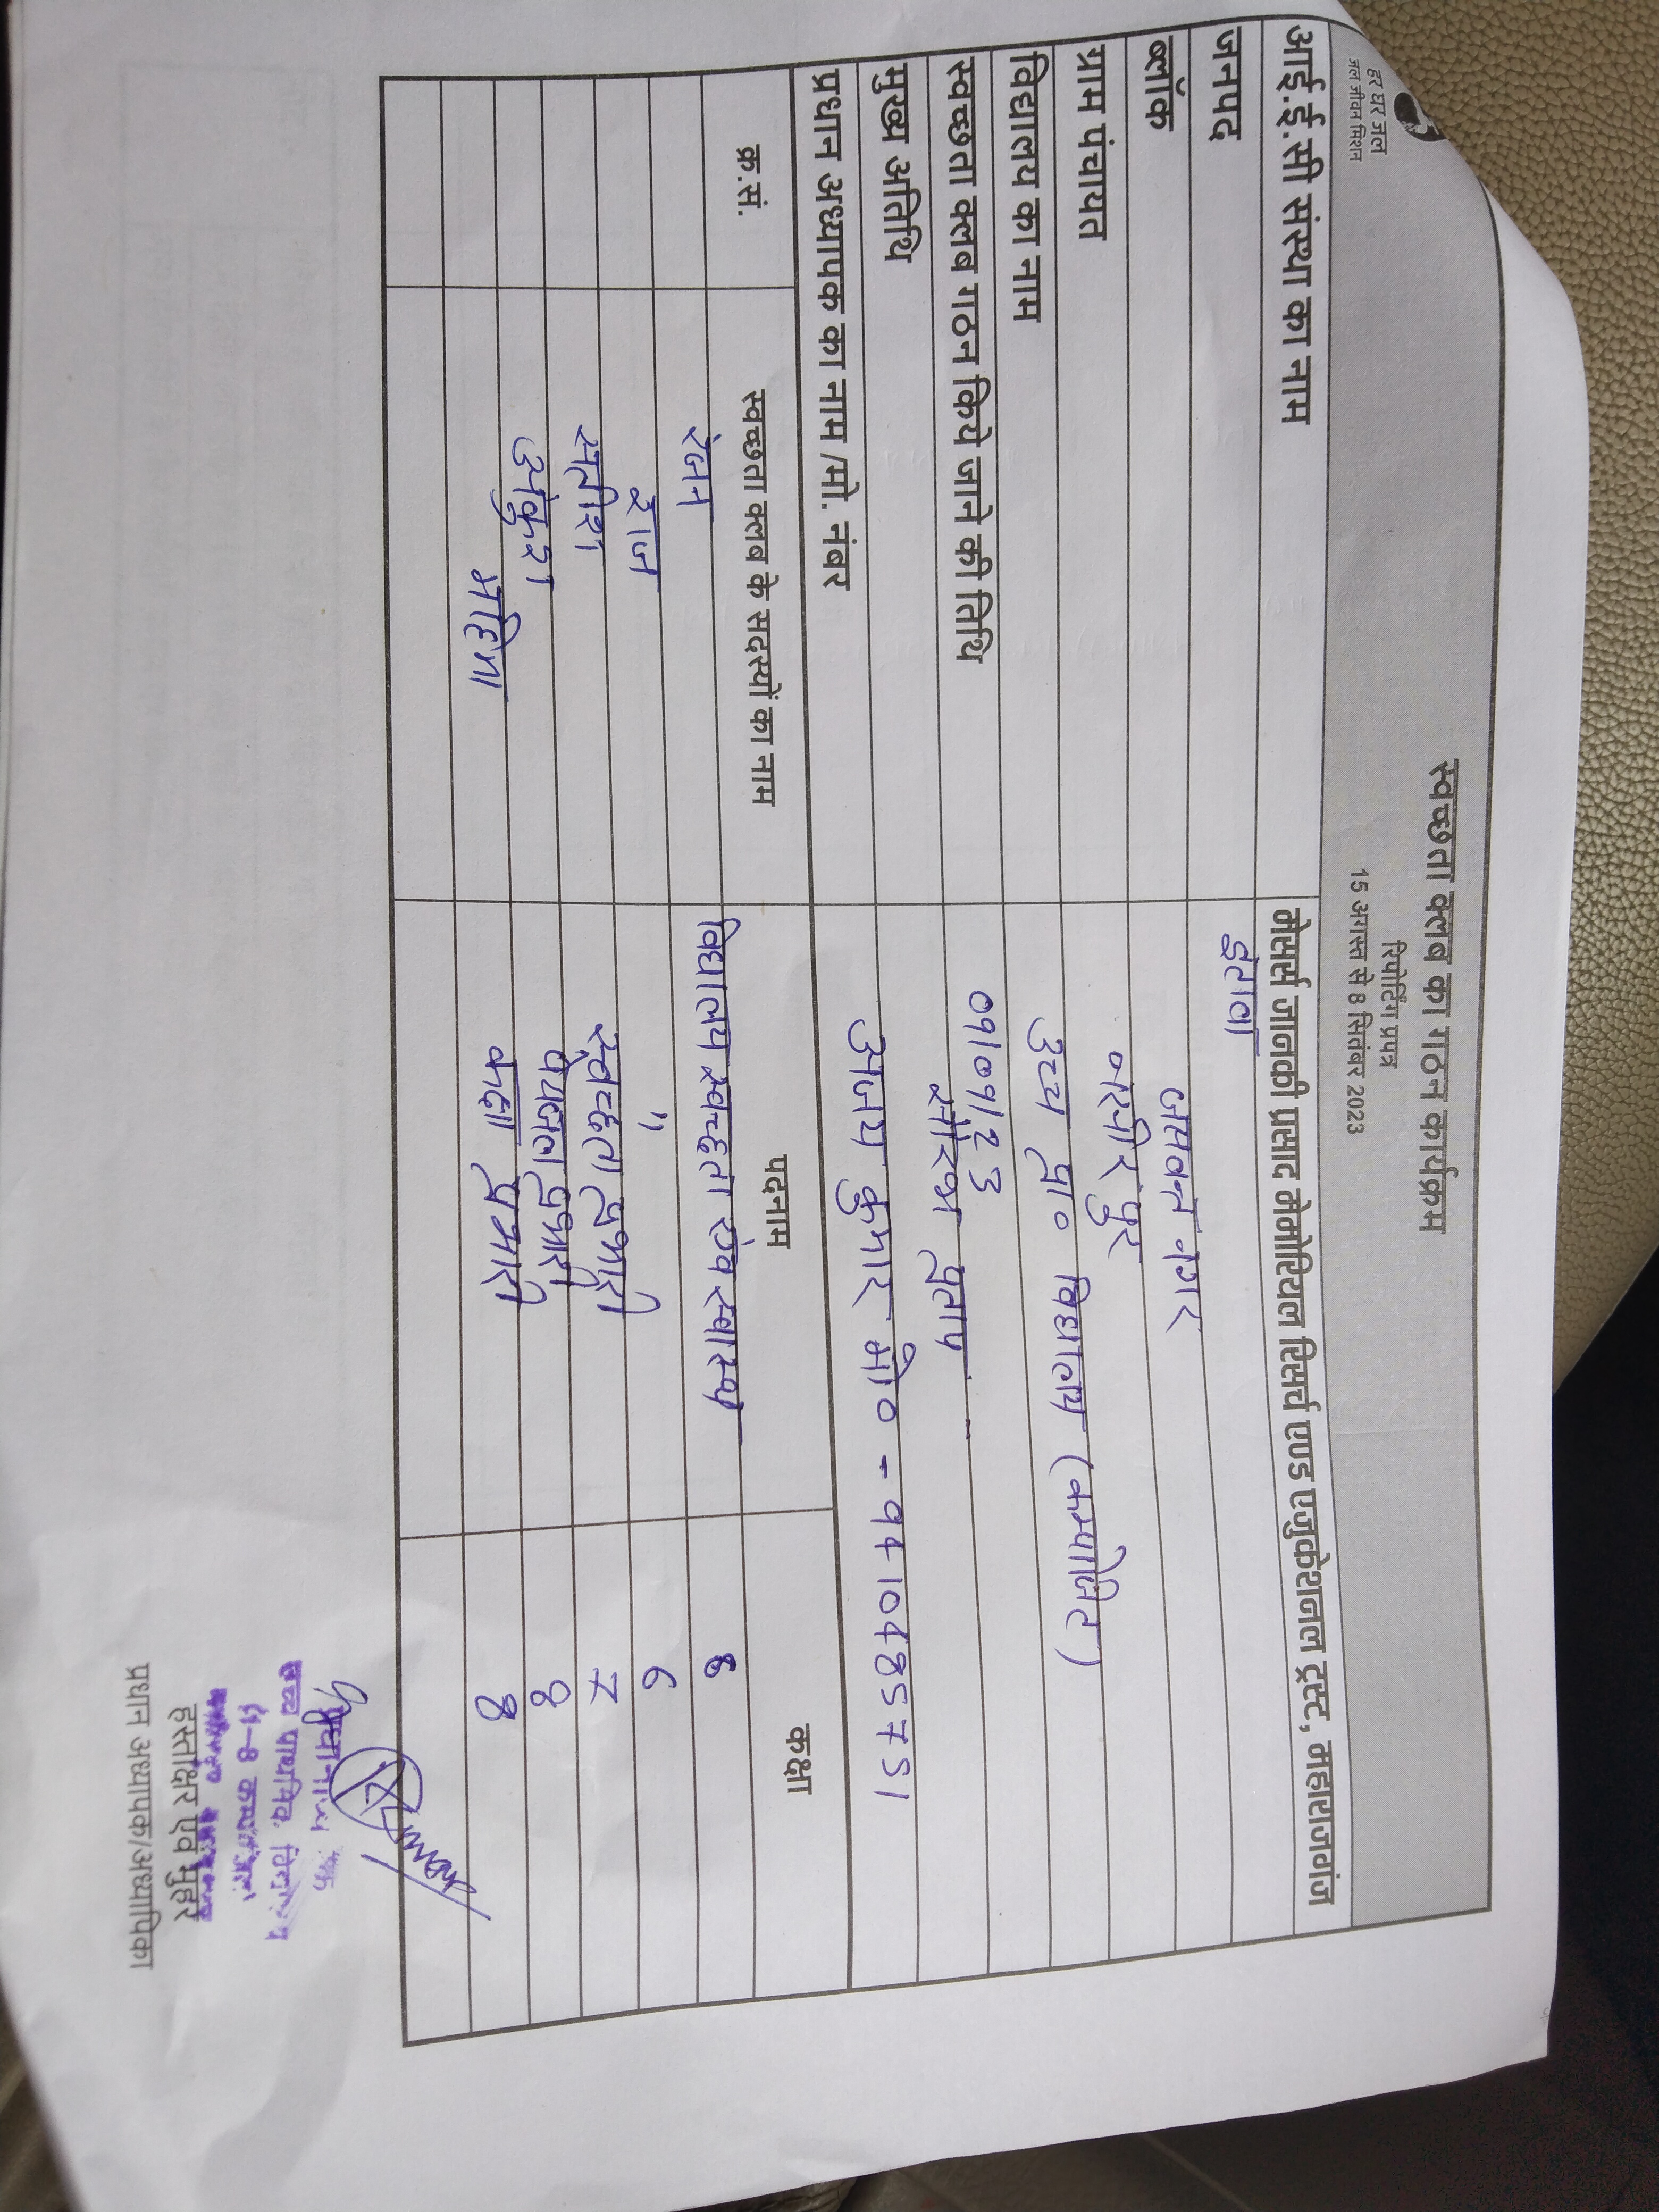 हर घर जल
जल जीवन मिशन
स्वच्छता क्लब का गठन कार्यक्रम
रिपोर्टिंग प्रपत्र
15 अगस्त से 8 सितंबर 2023
आई.ई.सी संस्था का नाम मेसर्स जानकी प्रसाद मेमोरियल रिसर्च एण्ड एजुकेशनल ट्रस्ट, महाराजगंज
जनपद इटावा
ब्लॉक जसवन्त नगर
ग्राम पंचायत
विद्यालय का नाम उच्च प्रा० विद्यालय (कम्पोजिट)
स्वच्छता क्लब गठन किये जाने की तिथि 07/09/23
मुख्य अतिथि प्रताप
प्रधान अध्यापक का नाम /मो. नंबर अजय कुमार मो० - 9410485751
क्र.सं. स्वच्छता क्लब के सदस्यों का नाम पदनाम कक्षा
विद्यालय स्वच्छता एंव स्वास्थ्य 8
राज " 6
सतीश स्वच्छता प्रभारी 7
अंकुश पेयजल प्रभारी 8
कक्षा प्रभारी 8
उच्च प्राथमिक
(1-8
हस्ताक्षर एवं मुहर
प्रधान अध्यापक/अध्यापिका